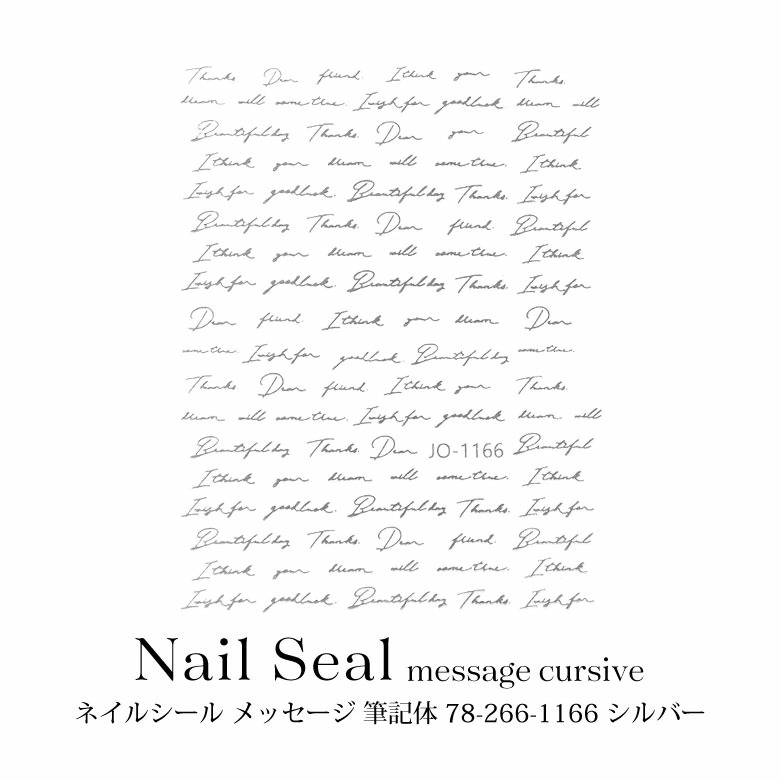 Thanks. Dear friend. I think your Thanks.
dream will come true. I wish for good luck. dream will
Beautiful day Thanks. Dear your Beautiful
I think your dream will come true. I think
I wish for good luck. Beautiful day Thanks. I wish for
Beautiful day Thanks. Dear friend. Beautiful
I think your dream will come true. I think
I wish for good luck. Beautiful day Thanks. I wish for
Dear friend. I think your dream Dear
come true. I wish for good luck. Beautiful day come true.
Thanks. Dear friend. I think your Thanks.
dream will come true. I wish for good luck. dream will
Beautiful day Thanks. Dear JO-1166 Beautiful
I think your dream will come true. I think
I wish for good luck. Beautiful day Thanks. I wish for
Beautiful day Thanks. Dear friend. Beautiful
I think your dream will come true. I think
I wish for good luck. Beautiful day Thanks. I wish for
Nail Seal message cursive
ネイルシール メッセージ 筆記体 78-266-1166 シルバー